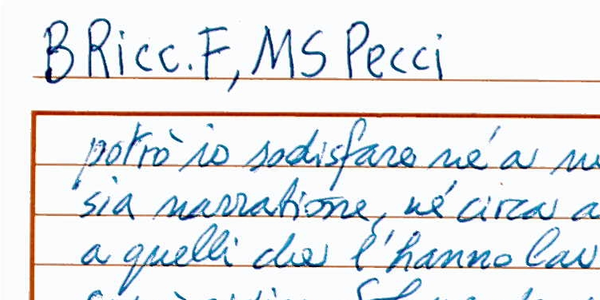 B Ricc. F, MS Pecci
potrò io sodisfare né a
sia narratione, né circa a
a quelli che l'hanno lav